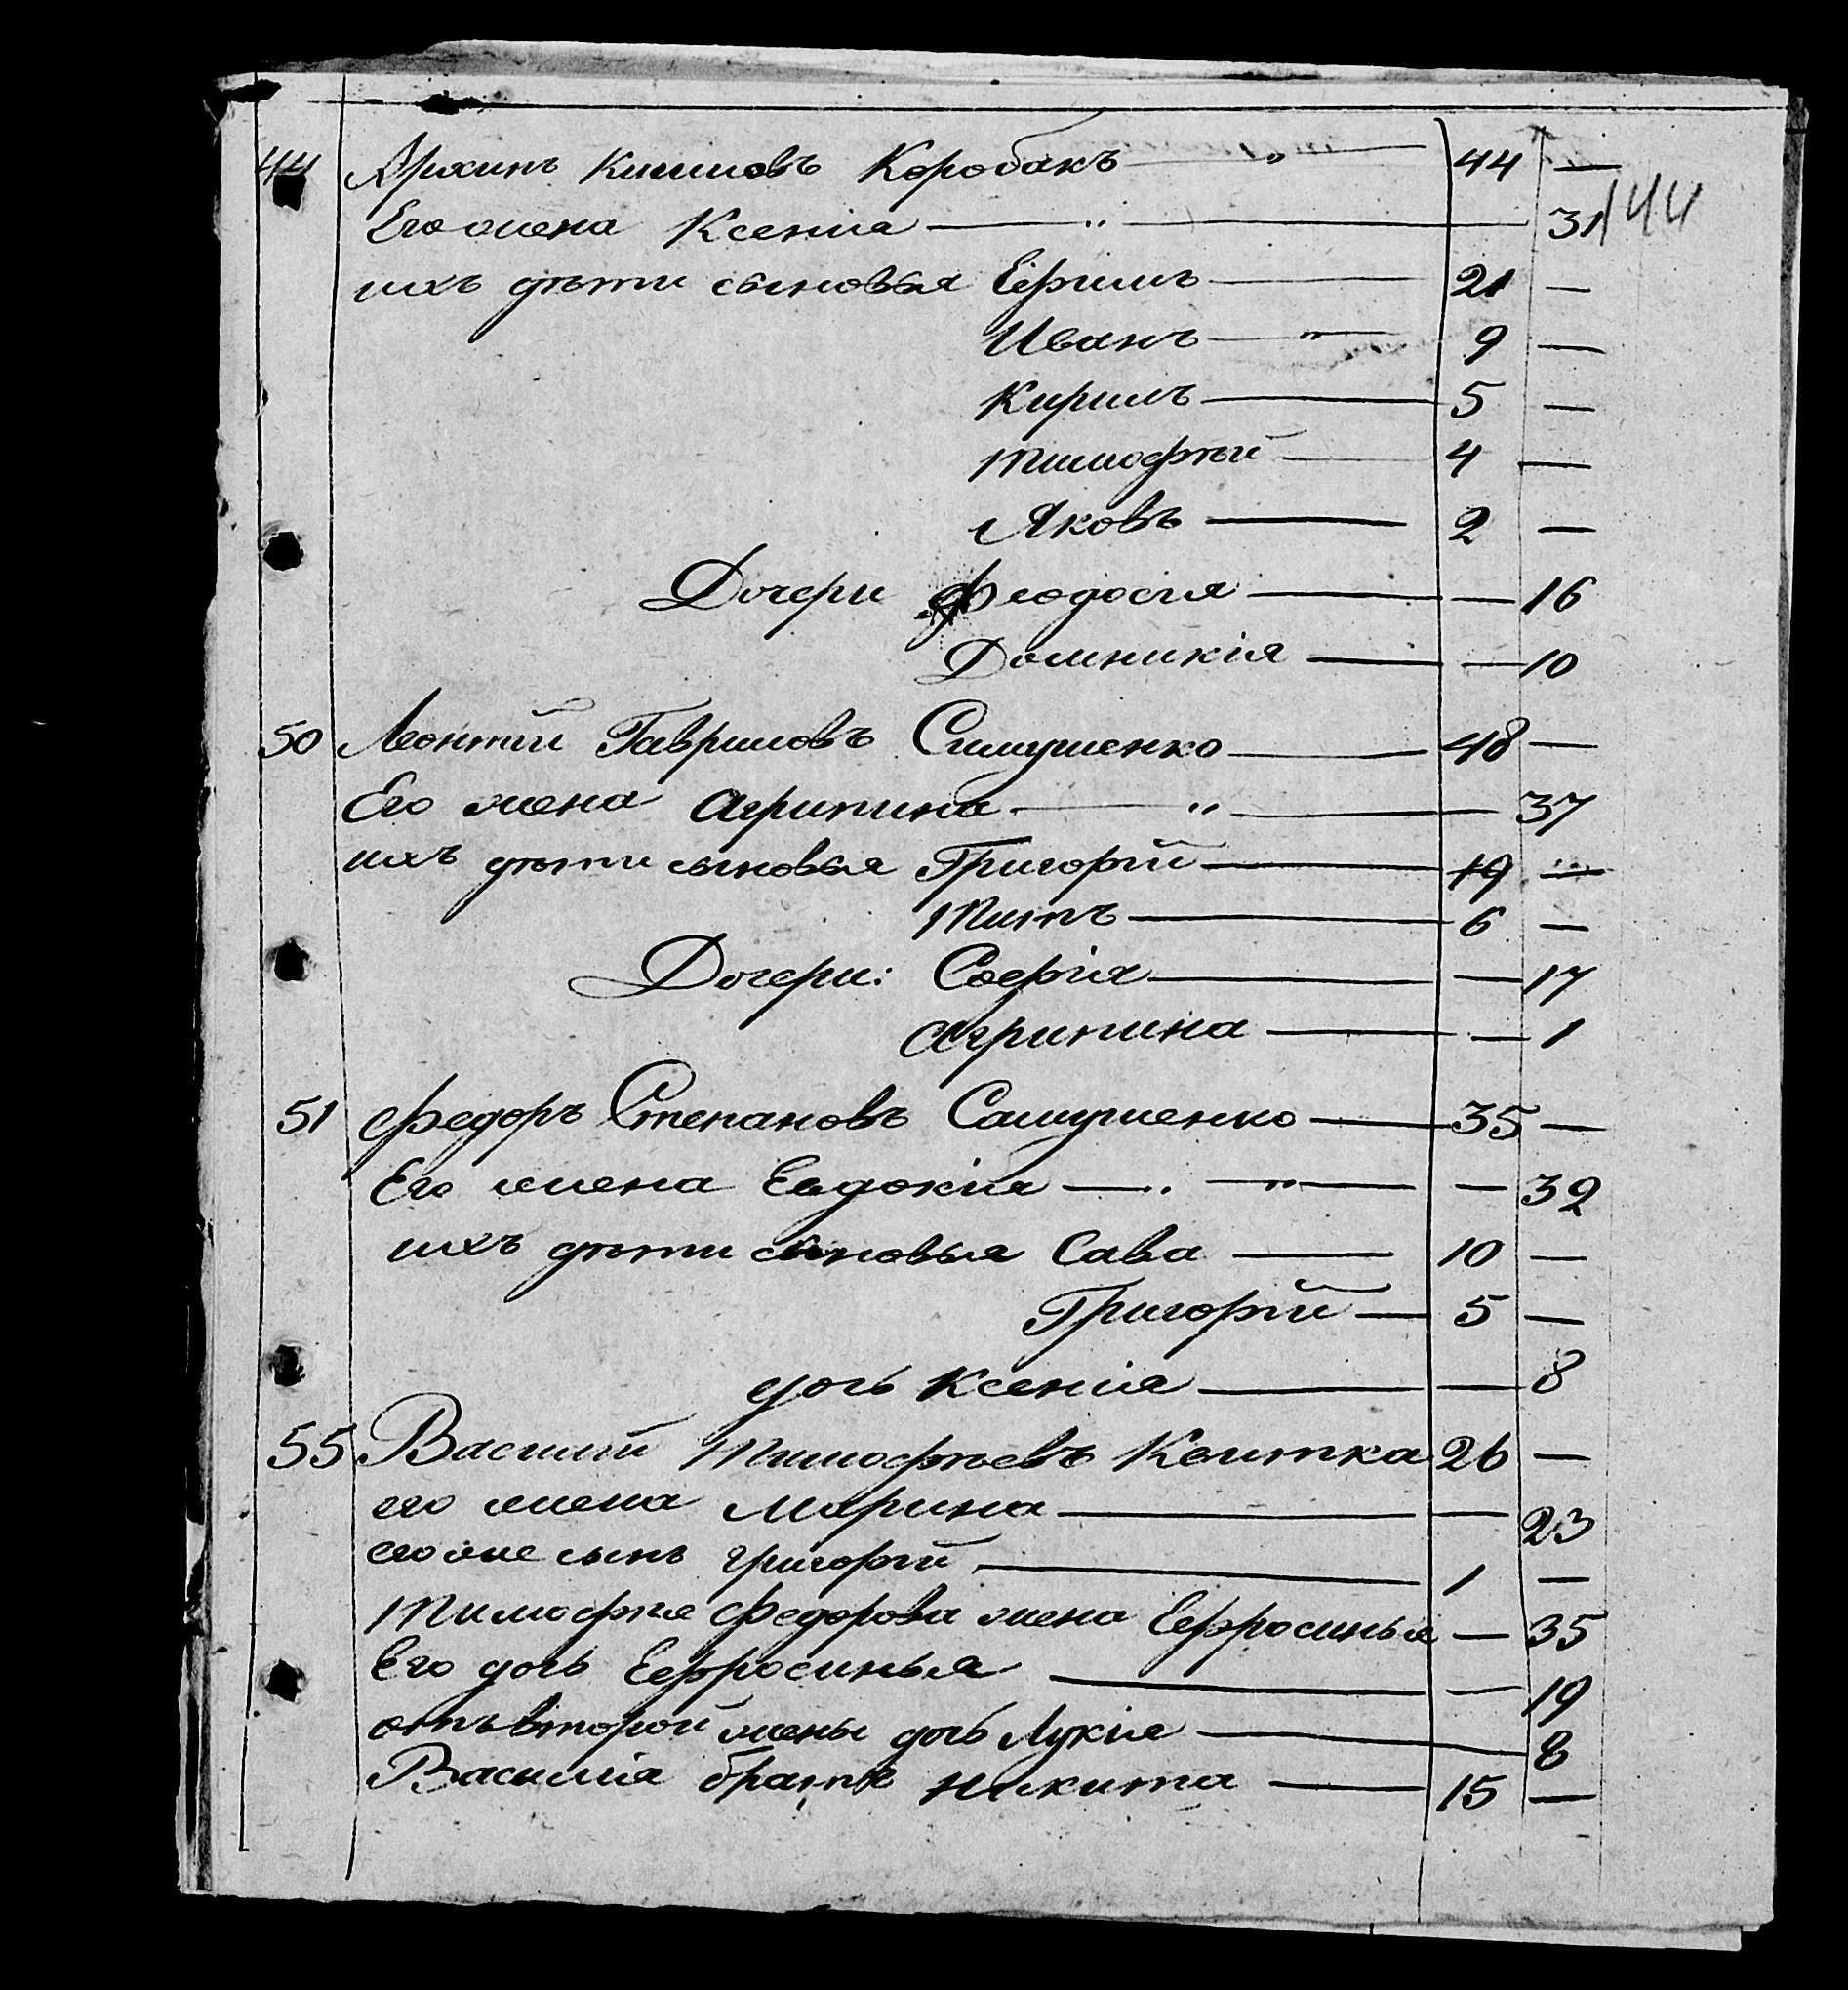 44 Архипъ Климовъ Коробакъ — " — 44 —
Его жена Ксенія — " — 31 144
ихъ дѣти сыновья Ефимъ — 21 —
Иванъ — " — 9 —
Кирилъ — 5 —
Тимофѣй — 4 —
Яковъ — 2 —
Дочери Феодосія — — 16
Домникія — — 10
50 Леонтій Гавриловъ Самушенко — 48 —
Его жена Агрипина — " — 37
ихъ дѣти сыновья Григорій — 19 —
Титъ — 6 —
Дочери: Софія — — 17
Агрипина — — 1
51 Федоръ Степановъ Самушенко — 35 —
Его жена Евдокія — " — — 32
ихъ дѣти сыновья Сава — 10 —
Григорій — 5 —
дочь Ксенія — — 8
55 Василій Тимофѣевъ Квитка 26 —
его жена Марина — — 23
его же сынъ Григорій — 1 —
Тимофѣя Федорова жена Ефросинья — 35
Его дочь Ефросинья — — 19
отъ второй жены дочь Лукія — 8
Василія братъ Никита — 15 —